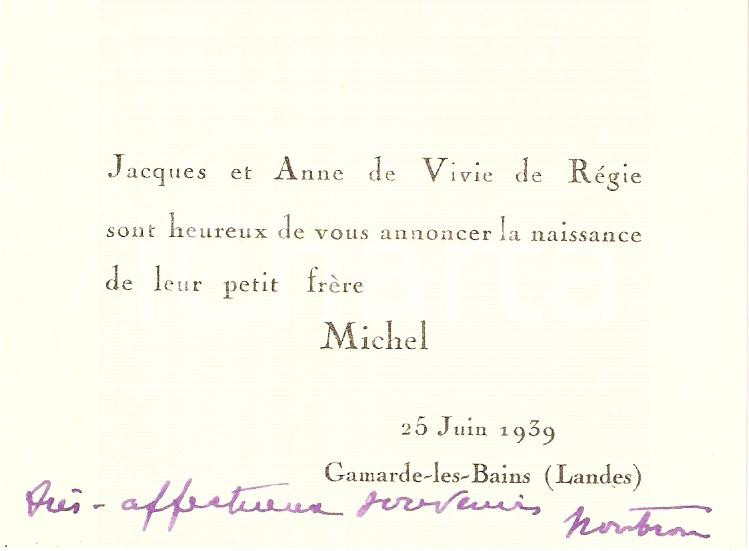 Jacques et Anne de Vivie de Régie
sont heureux de vous annoncer la naissance
de leur petit frère
Michel
25 Juin 1939
Gamarde-les-Bains (Landes)
Très-affectueux souvenirs